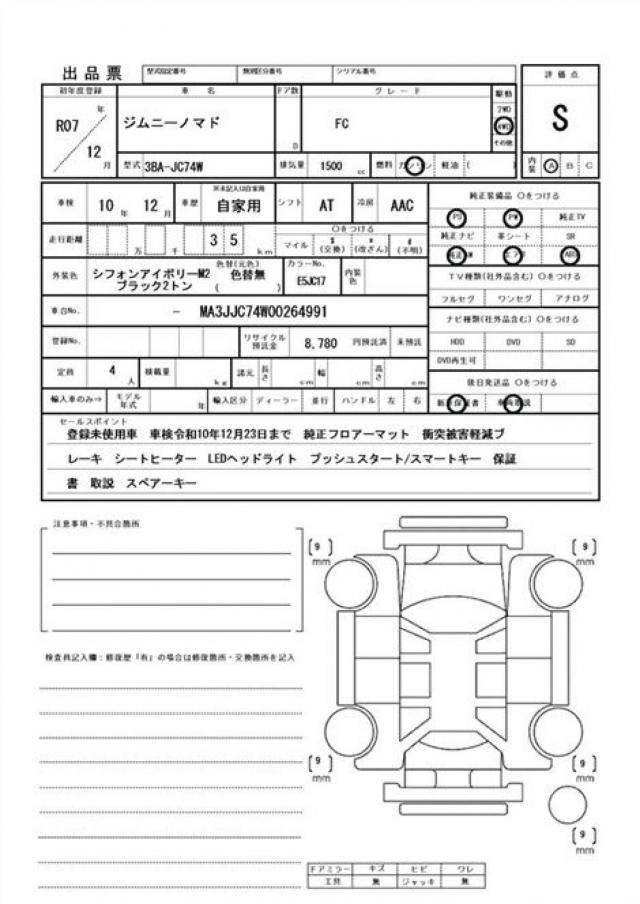 出品票 型式指定番号 類別区分番号 シリアル番号
初年度登録 車名 ドア数 グレード 駆動 評価点
R07 年 ジムニーノマド FC 2WD S
4WD
12 月 D その他
型式 3BA-JC74W 排気量 1500 cc 燃料 ガソリン 軽油 ( ) 内装 A B C
車検 10 年 12 月 車歴 ※未記入は自家用 自家用 シフト AT 冷房 AAC 純正装備品 ○をつける
PS PW 純正TV
走行距離 万 千 3 5 km ○をつける マイル $ (交換) * (改ざん) # (不明) 純正ナビ 革シート SR
純正AW エアB ABS
外装色 シフォンアイボリーM2 ブラック2トン 色替(元色) 色替無 ( カラーNo. E5JC17 内装色 TV種類(社外品含む) ○をつける
フルセグ ワンセグ アナログ
車台No. - MA3JJC74W00264991 ナビ種類(社外品含む) ○をつける
登録No. リサイクル預託金 8,780 円預託済 未預託 HDD DVD SD
DVD再生可
定員 4 人 積載量 kg 諸元 長さ cm 幅 cm 高さ cm 後日発送品 ○をつける
輸入車のみ⇒ モデル年式 年 輸入区分 ディーラー 並行 ハンドル 左 右
セールスポイント
登録未使用車 車検令和10年12月23日まで 純正フロアーマット 衝突被害軽減ブ
レーキ シートヒーター LEDヘッドライト プッシュスタート/スマートキー 保証
書 取説 スペアーキー
注意事項・不具合箇所
[9] mm [9] mm
検査員記入欄:修復歴「有」の場合は修復箇所・交換箇所を記入
[9] mm [9] mm
[9] mm
ドアミラー キズ ヒビ ワレ
工具 無 ジャッキ 無